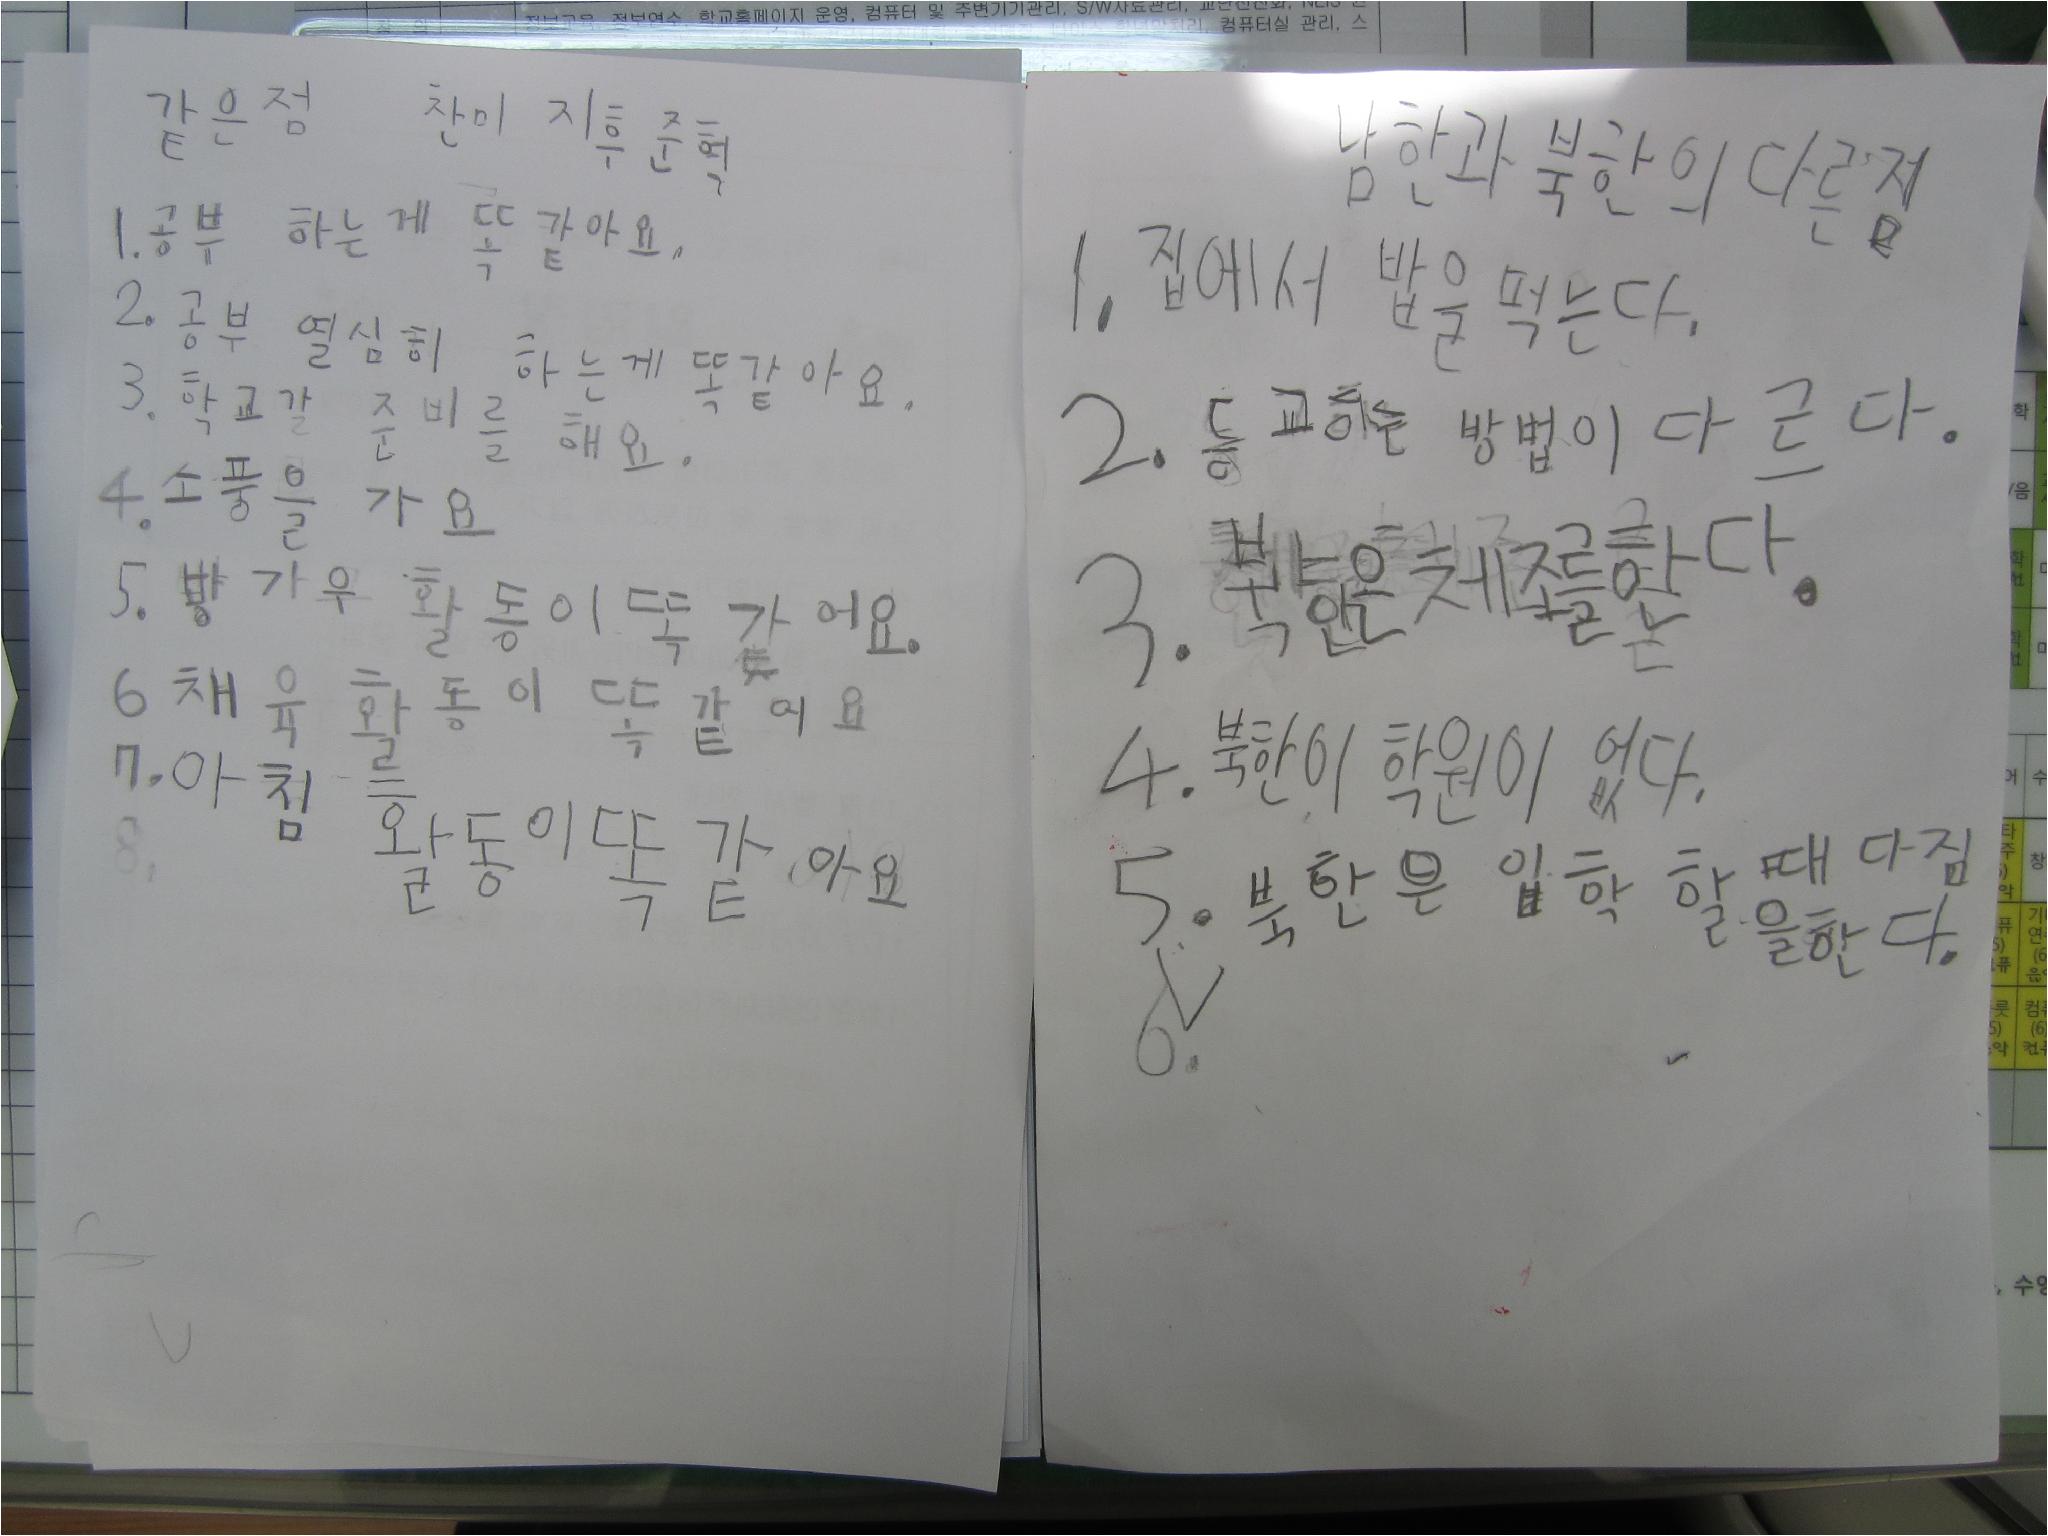 정보교육, 정보연수, 학교홈페이지 운영, 컴퓨터 및 주변기기관리, S/W자료관리,
컴퓨터실 관리, 스
같은점 찬미 지후 준혁
1. 공부 하는게 똑같아요.
2. 공부 열심히 하는게 똑같아요.
3. 학교갈 준비를 해요.
4. 소풍을 가요
5. 방가우 활동이 똑같어요.
6 채육 활동이 똑같어요
7. 아침 활동이 똑같아요
8.
남한과 북한의 다른점
1. 집에서 밥을 먹는다.
2. 등교하는 방법이 다르다.
3. 체조를한다.
4. 북한이 학원이 없다.
5. 북한은 입학 할때 다짐
을한다.
6.
, 수영